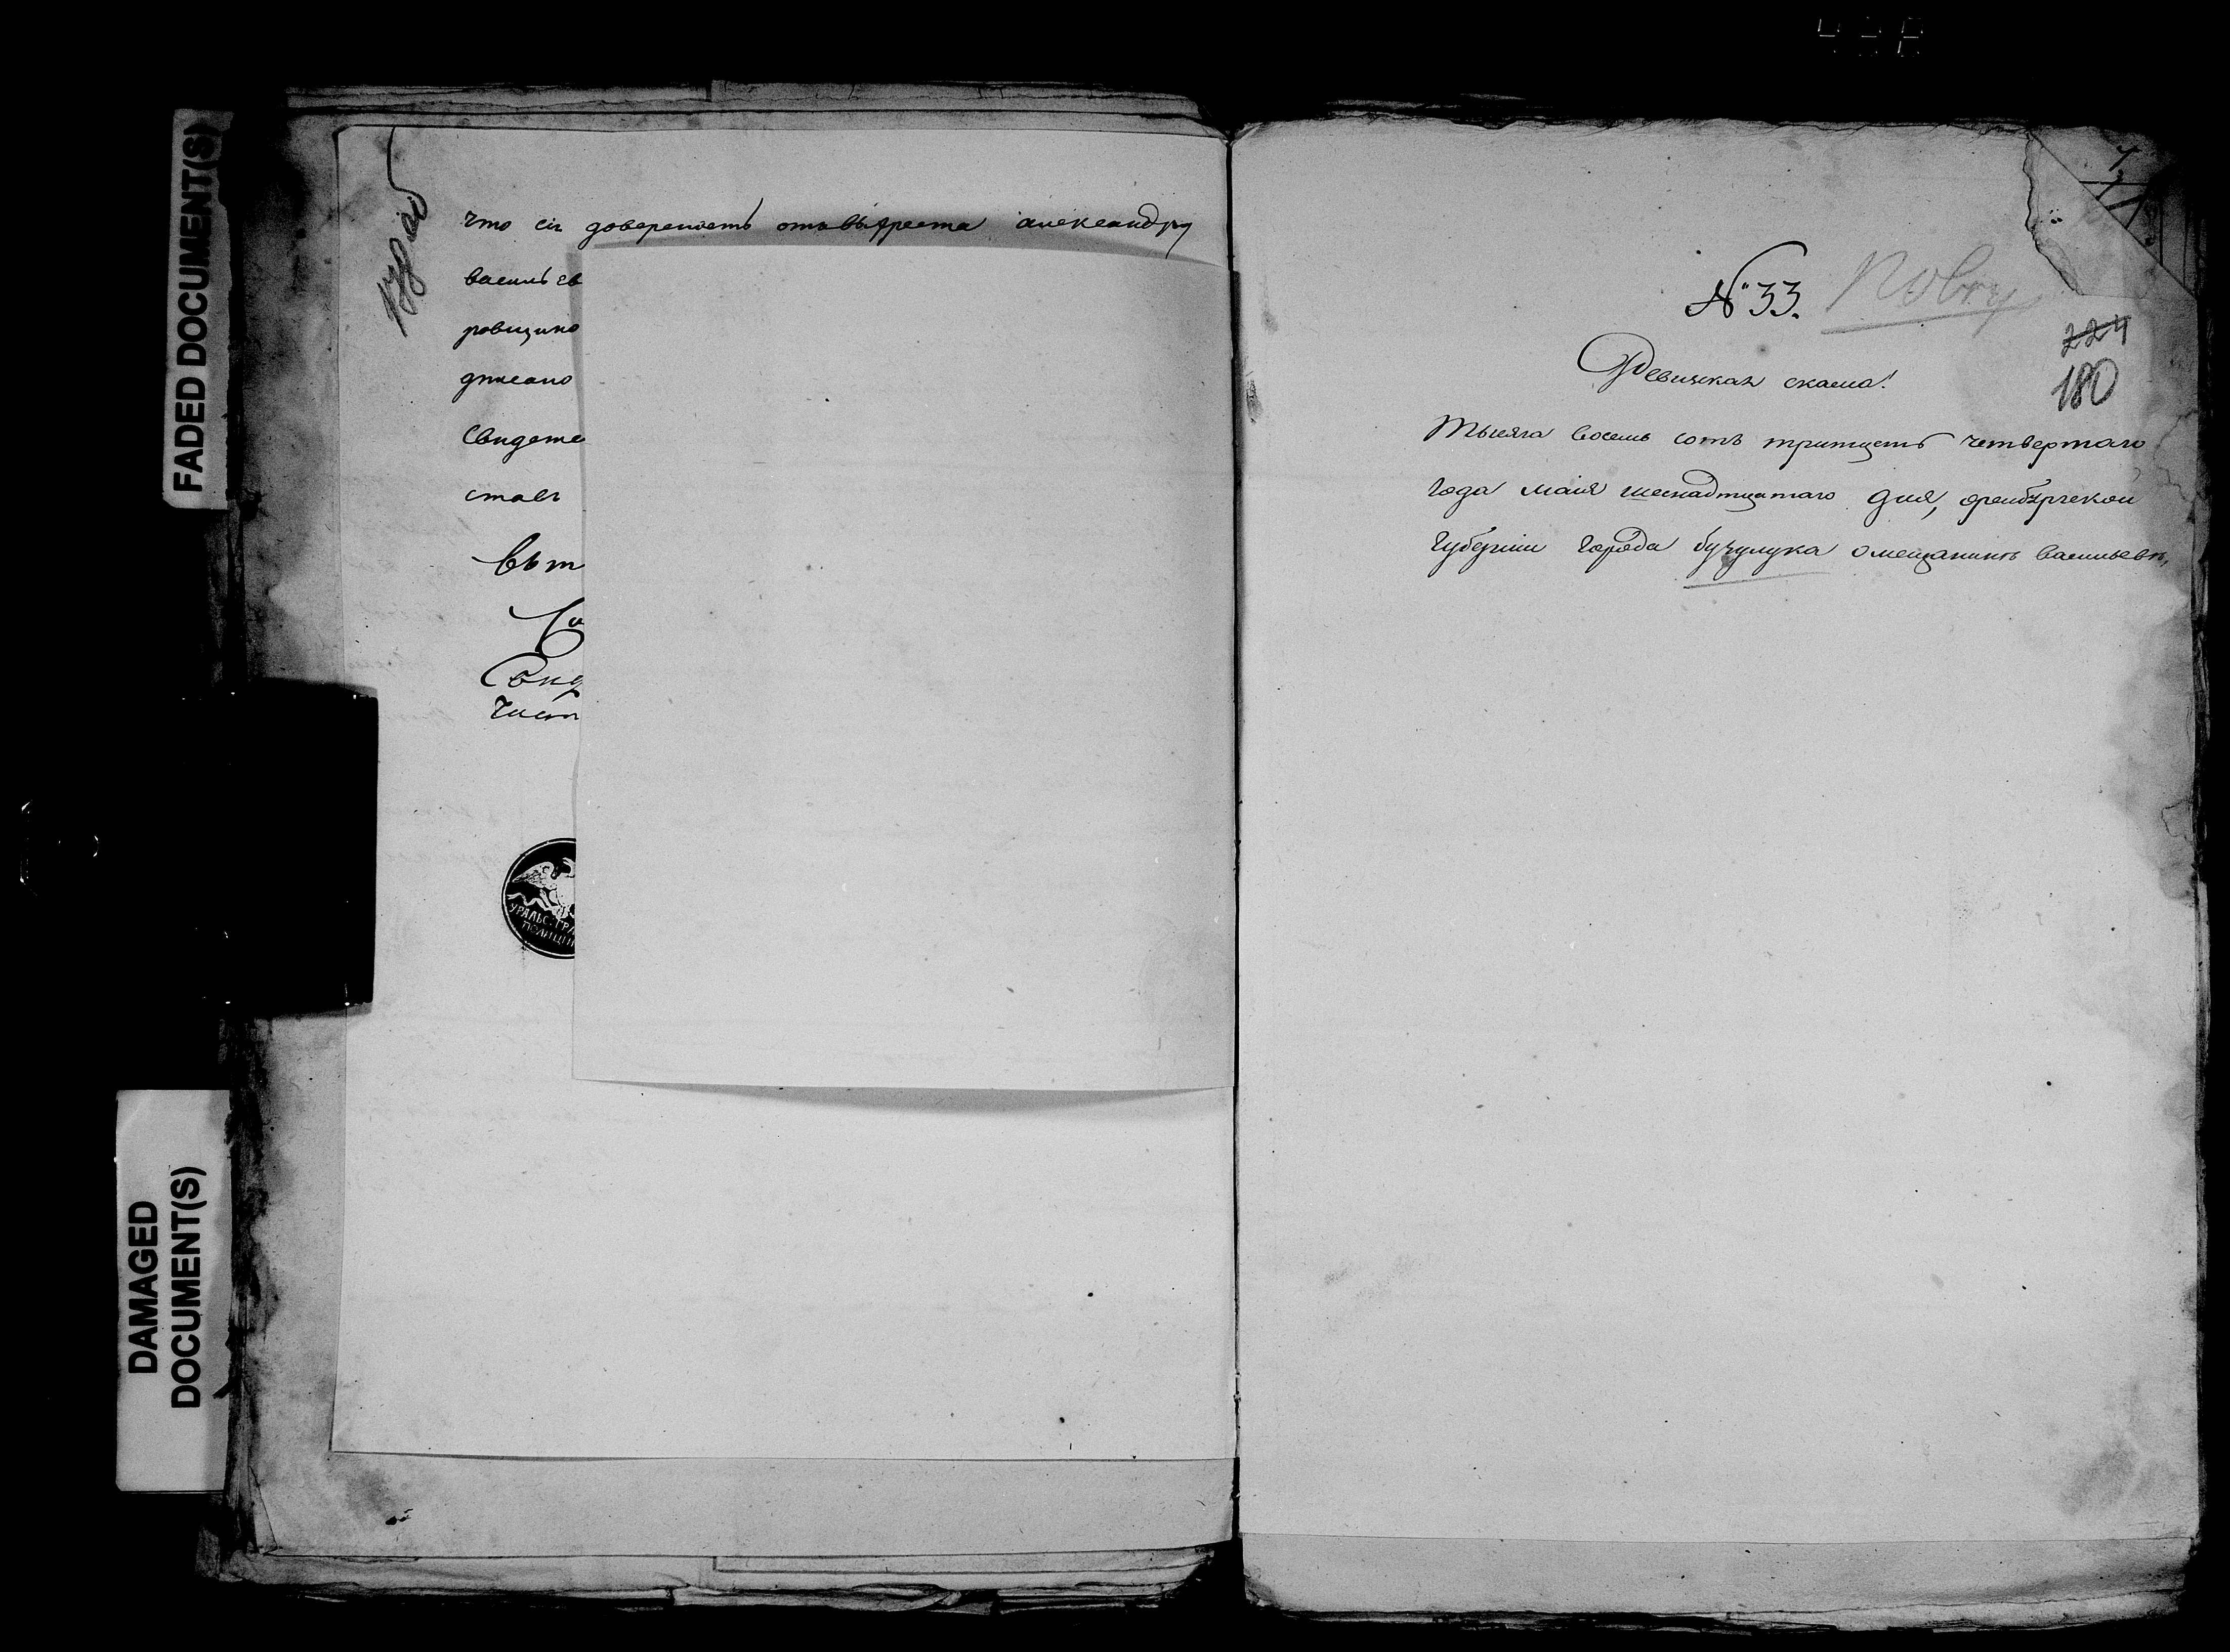 FADED DOCUMENT(S)
DAMAGED
DOCUMENT(S)
что сія довереность
александру
василь ев
ровщико
дписано
Свидете
ставъ
Вът
Со
Свид
Част
УРАЛЬС. ГРА
ПОЛИЦІИ
№ 33.
224
180
Ревизская скаска!
Тысяча восемь сотъ тритцеть четвертаго
года маия шеснадтцатаго дня, оренбургской
Губернии города бузулука о мещанинъ васильевъ,